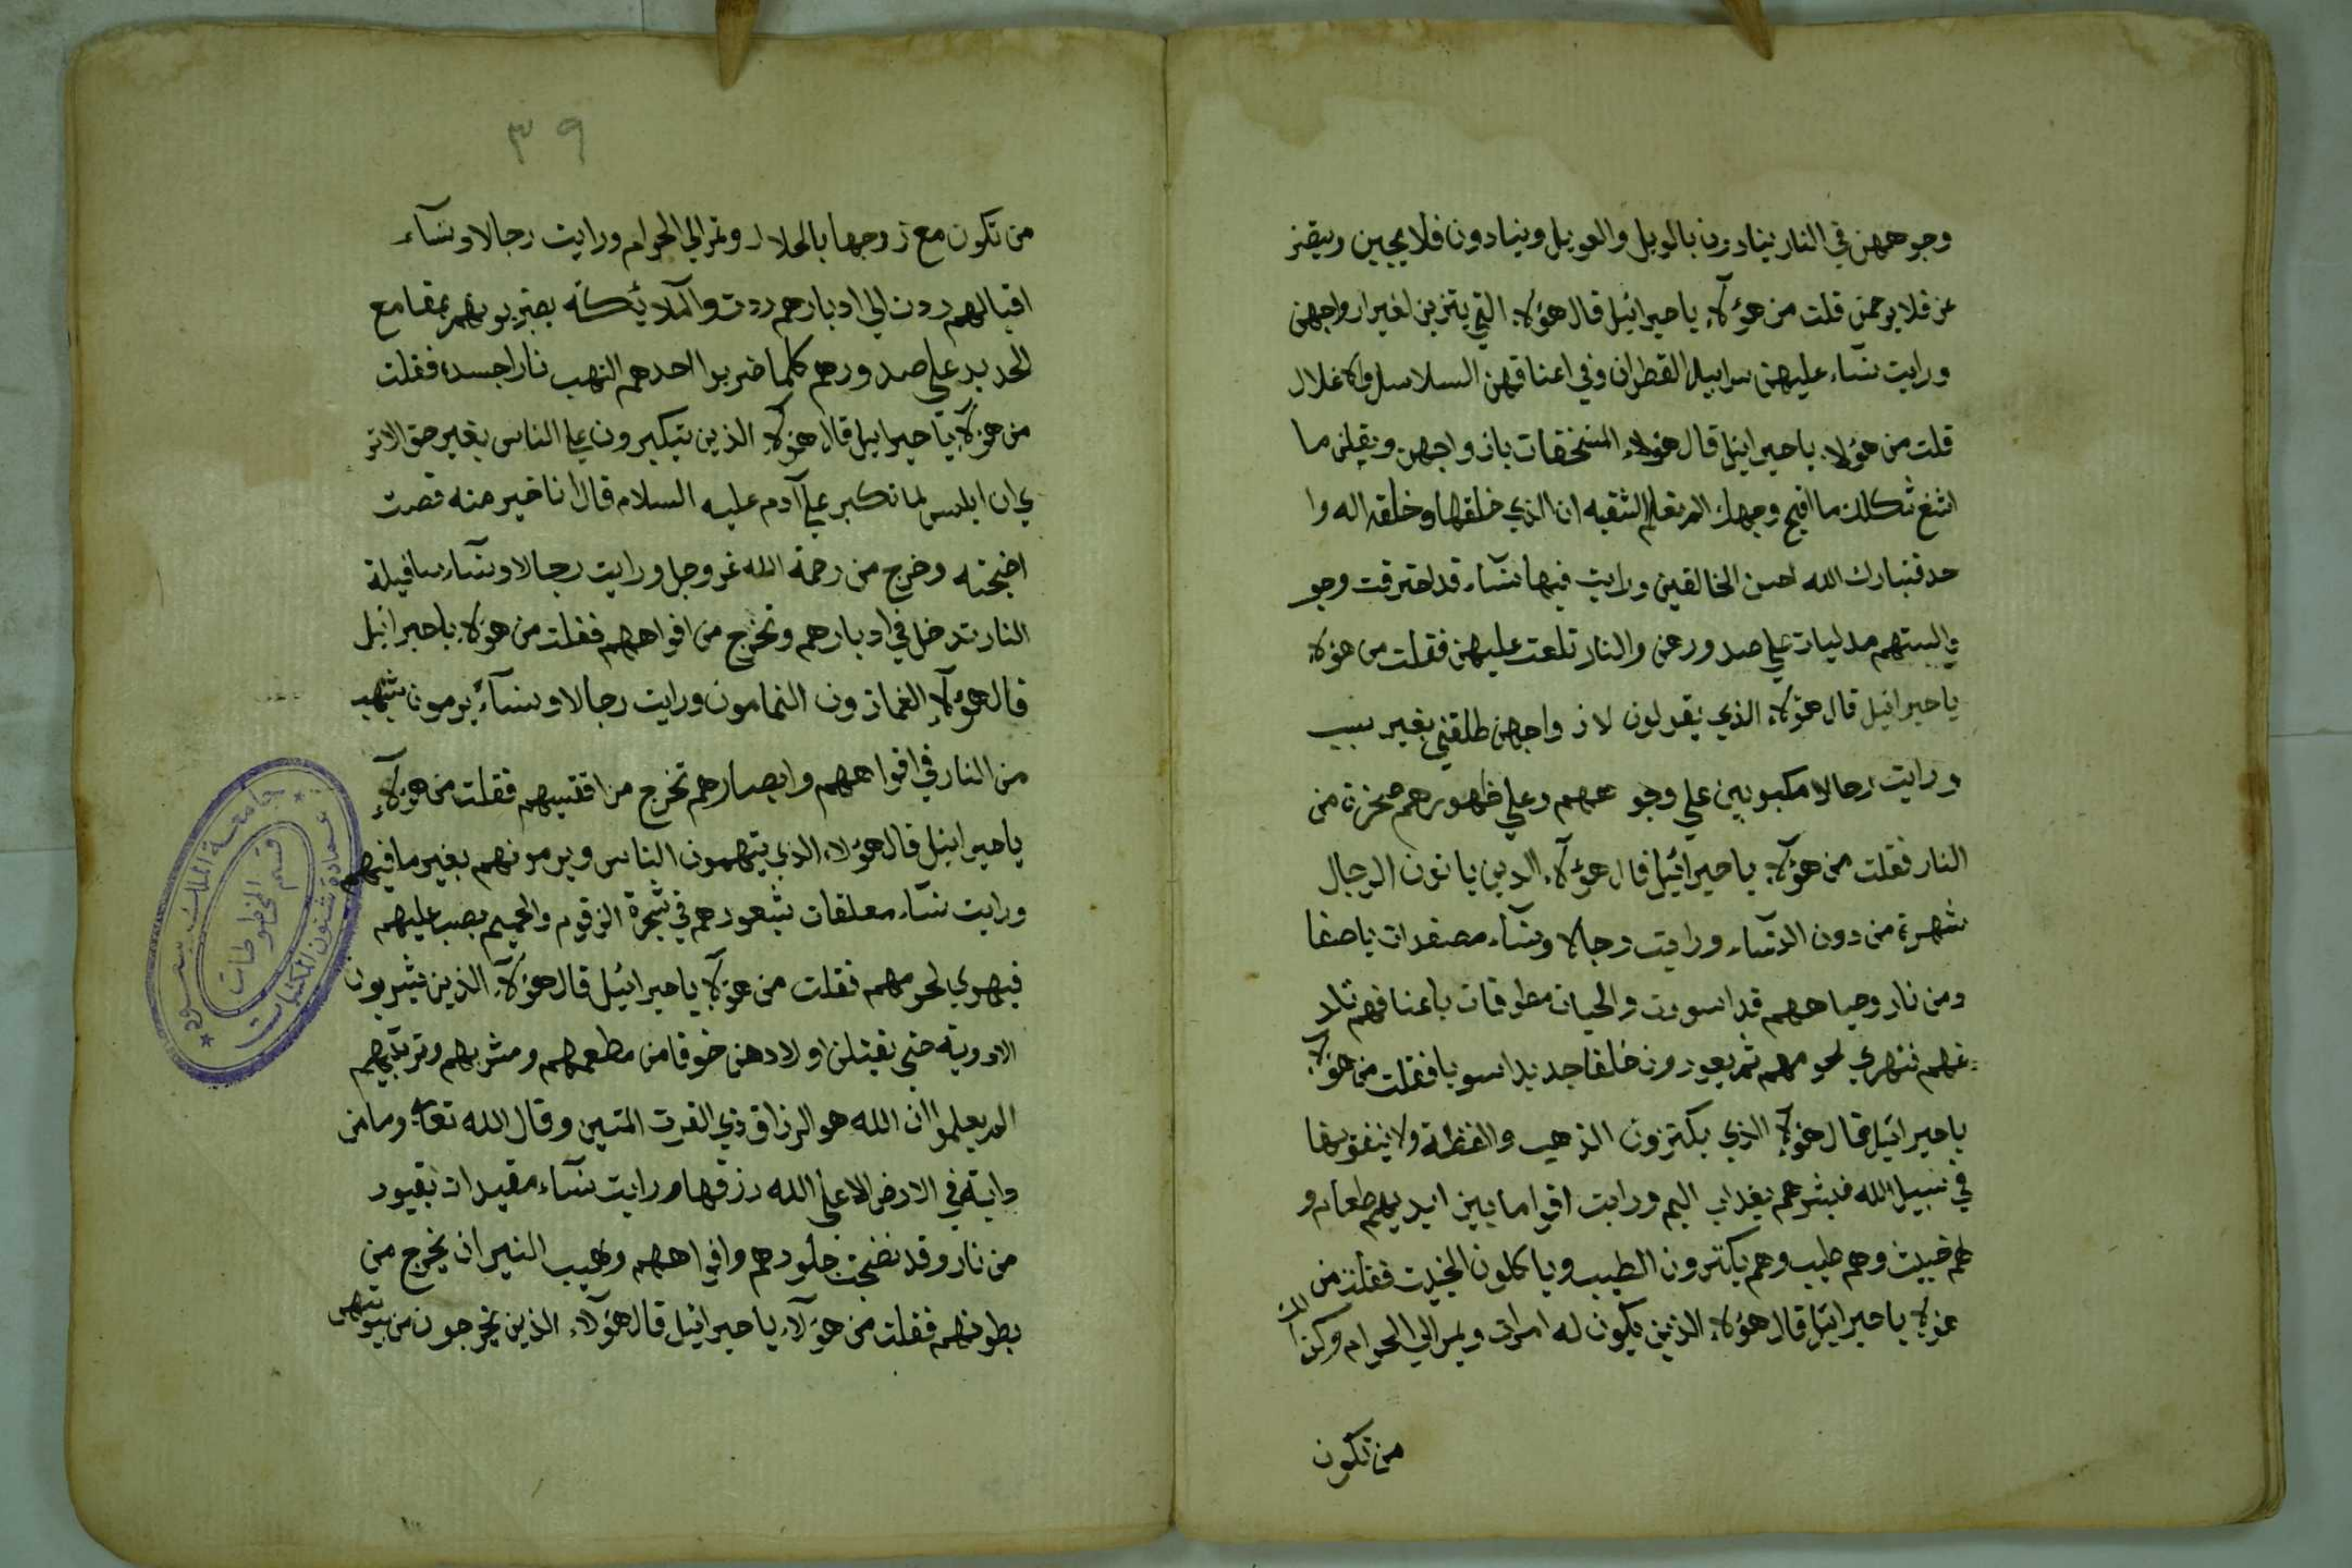 وجوههن في النار ينادون بالويل والعويل وينادون فلا يجبن ويتضر
عن فلا يرحمن قلت من هؤلاء يا جبرائيل قال هؤلاء التي يتزين لغير ازواجهن
ورايت نساء عليهن سرابيل القطران وفي اعناقهن السلاسل والاغلال
قلت من هؤلاء يا جبرائيل قال هؤلاء المستخفات بازواجهن ويقلن ما
اقبح وجهك الم تعلم الشقيه ان الذي خلقها وخلقه اله وا
حد فتبارك الله احسن الخالقين ورايت فيها نساء قد احترقت وجو
والسنتهم مدليات علي صدورهن والنار تلعت عليهن فقلت من هؤلاء
يا جبرائيل قال هؤلاء الذي يقولون لازواجهن طلقني بغير سبب
ورايت رجالا مكبوبين علي وجوههم وعلي ظهورهم صخرة من
النار فقلت من هؤلاء يا جبرائيل قال هؤلاء الذين ياتون الرجال
شهرة من دون النساء ورايت رجالا ونساء مصفدات باصفا
ومن نار وجباههم قد اسودت والحيات مطوقات باعناقهم تلد
غهم فتهري لحومهم ثم يعودون خلقا جديدا سويا فقلت من هؤلاء
يا جبرائيل قال هؤلاء الذي يكنزون الذهب والفضة ولا ينفقونها
في سبيل الله فبشرهم بعذاب اليم ورايت اقواما بين ايديهم طعام و
لهم خبيث وهم طيب وهم يكثرون الطيب وياكلون الخبيث فقلت من
هؤلاء يا جبرائيل قال هؤلاء الذين يكون له امرات ويمر الي الحرام وكذا
من تكون
٣٩
من تكون مع زوجها بالحلال وتمر الي الحرام ورايت رجالا ونساء
اقبالهم ردت الي ادبارهم ردت والملائكة يضربونهم بمقامع
الحديد علي صدورهم كلما ضربوا احدهم التهب نارا جسده فقلت
من هؤلاء يا جبرايل قال هؤلاء الذين يتكبرون علي الناس بغير حق الا تر
ي ان ابليس لما تكبر علي آدم عليه السلام قال انا خير منه قصرت
اضجته وخرج من رحمة الله عز وجل ورايت رجالا ونساء
النار تدخل في ادبارهم وتخرج من افواههم فقلت من هؤلاء يا جبرائيل
قال هؤلاء الغمازون النمامون ورايت رجالا ونساء يرمون بشهب
من النار في افواههم وابصارهم تخرج من اقفيتهم فقلت من هؤلاء
يا جبرائيل قال هؤلاء الذي يتهمون الناس ويرمونهم بغير ما فيهم
ورايت نساء معلقات بشعورهم في شجرة الزقوم والحميم يصب عليهم
فيهري لحومهم فقلت من هؤلاء يا جبرائيل قال هؤلاء الذين يشربون
الادوية حتي يقتلن اولادهن خوفا من مطعمهم ومشربهم وتربيتهم
الم يعلموا ان الله هو الرزاق ذي القوت المتين وقال الله تعالى وما من
دابة في الارض الا علي الله رزقها ورايت نساء مقيدات بقيود
من نار وقد نضجت جلودهم وافواههم ولهيب النيران يخرج من
بطونهم فقلت من هؤلاء يا جبرائيل قال هؤلاء الذين يخرجون من بيوتهن
جامعة الملك سعود
عمادة شئون المكتبات
قسم المخطوطات